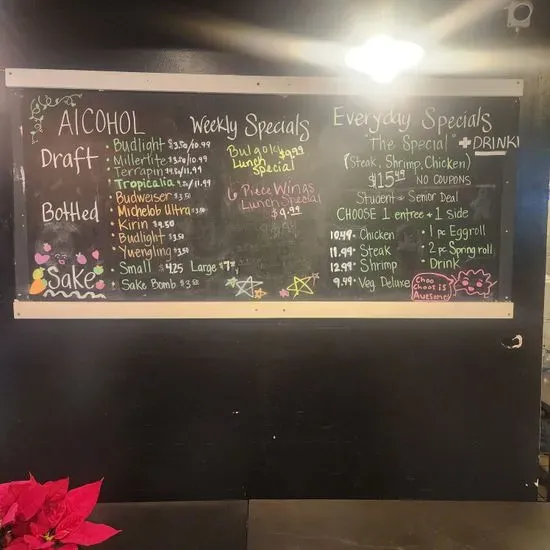 AlCOHOL
Draft
• Budlight $3.50/10.99
• Millerlite $3.50/10.99
• Terrapin /11.99
• Tropicalia /11.99
Bottled
• Budweiser $3.50
• Michelob Ultra
• Kirin $9.50
• Budlight $3.50
• Yuengling $3.50
Sake
• Small $4.25 Large
• Sake Bomb
Weekly Specials
Bulgoki $9.99
Lunch
Special
6 Piece Wings
Lunch Special
$9.99
Everyday Specials
"The Special" + DRINK!
(Steak, Shrimp, Chicken)
$15.49 NO COUPONS
Student or Senior Deal
CHOOSE 1 entree + 1 side
10.49 • Chicken
11.99 • Steak
12.99 • Shrimp
9.49 • Veg Deluxe
• 1 pc Eggroll
• 2 pc Spring roll
• Drink
Choo
Choo! is
Awesome!